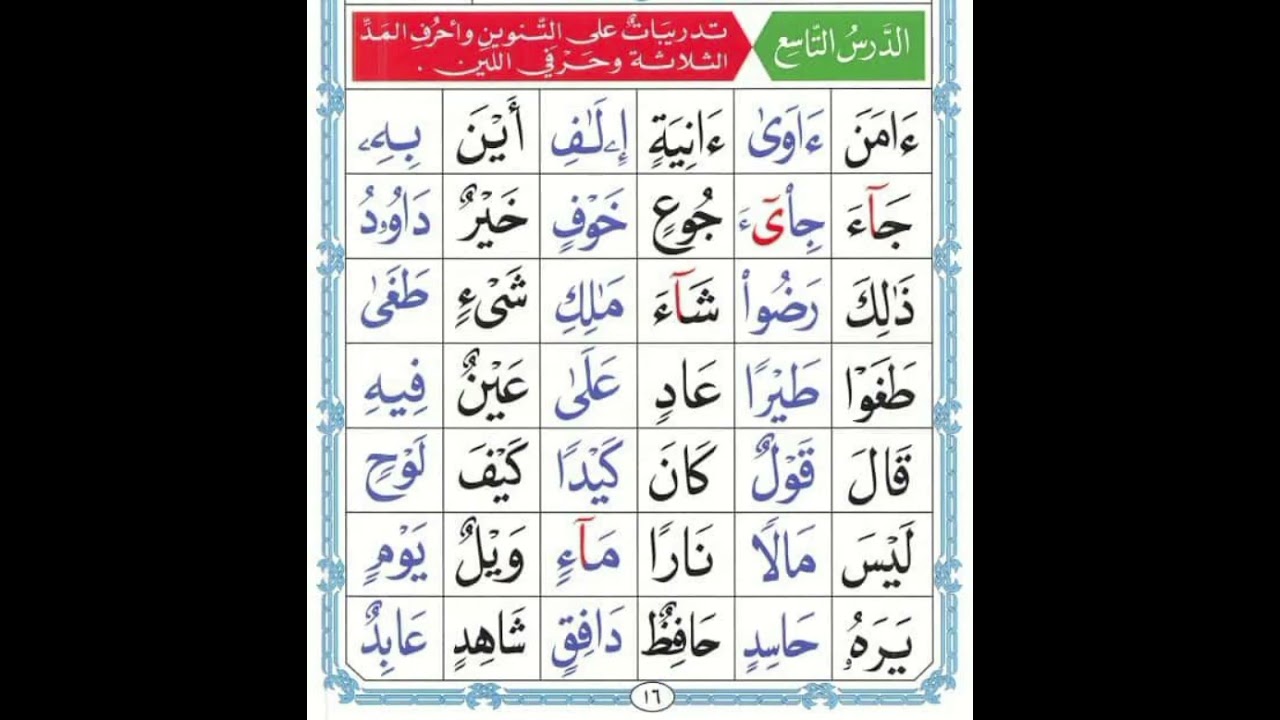 الدَّرسُ التَّاسِع
تدريبَاتٌ على التَّنوينِ وأحرُفِ المَدِّ
الثلاثة وحَرفَيِ اللين .
ءَامَنَ ءَاوَىٰ ءَانِيَةٍ إِۦلَـٰفِ أَيْنَ بِهِۦ
جَآءَ جِا۟يٓءَ جُوعٍ خَوْفٍ خَيْرٌ دَاوُۥدُ
ذَٰلِكَ رَضُوا۟ شَآءَ مَـٰلِكِ شَىْءٍ طَغَىٰ
طَغَوْا۟ طَيْرًا عَادٍ عَلَىٰ عَيْنٌ فِيهِ
قَالَ قَوْلٌ كَانَ كَيْدًا كَيْفَ لَوْحٍ
لَيْسَ مَالًا نَارًا مَآءٍ وَيْلٌ يَوْمٍ
يَرَهُۥ حَاسِدٍ حَافِظٌ دَافِقٍ شَاهِدٍ عَابِدٌ
١٦